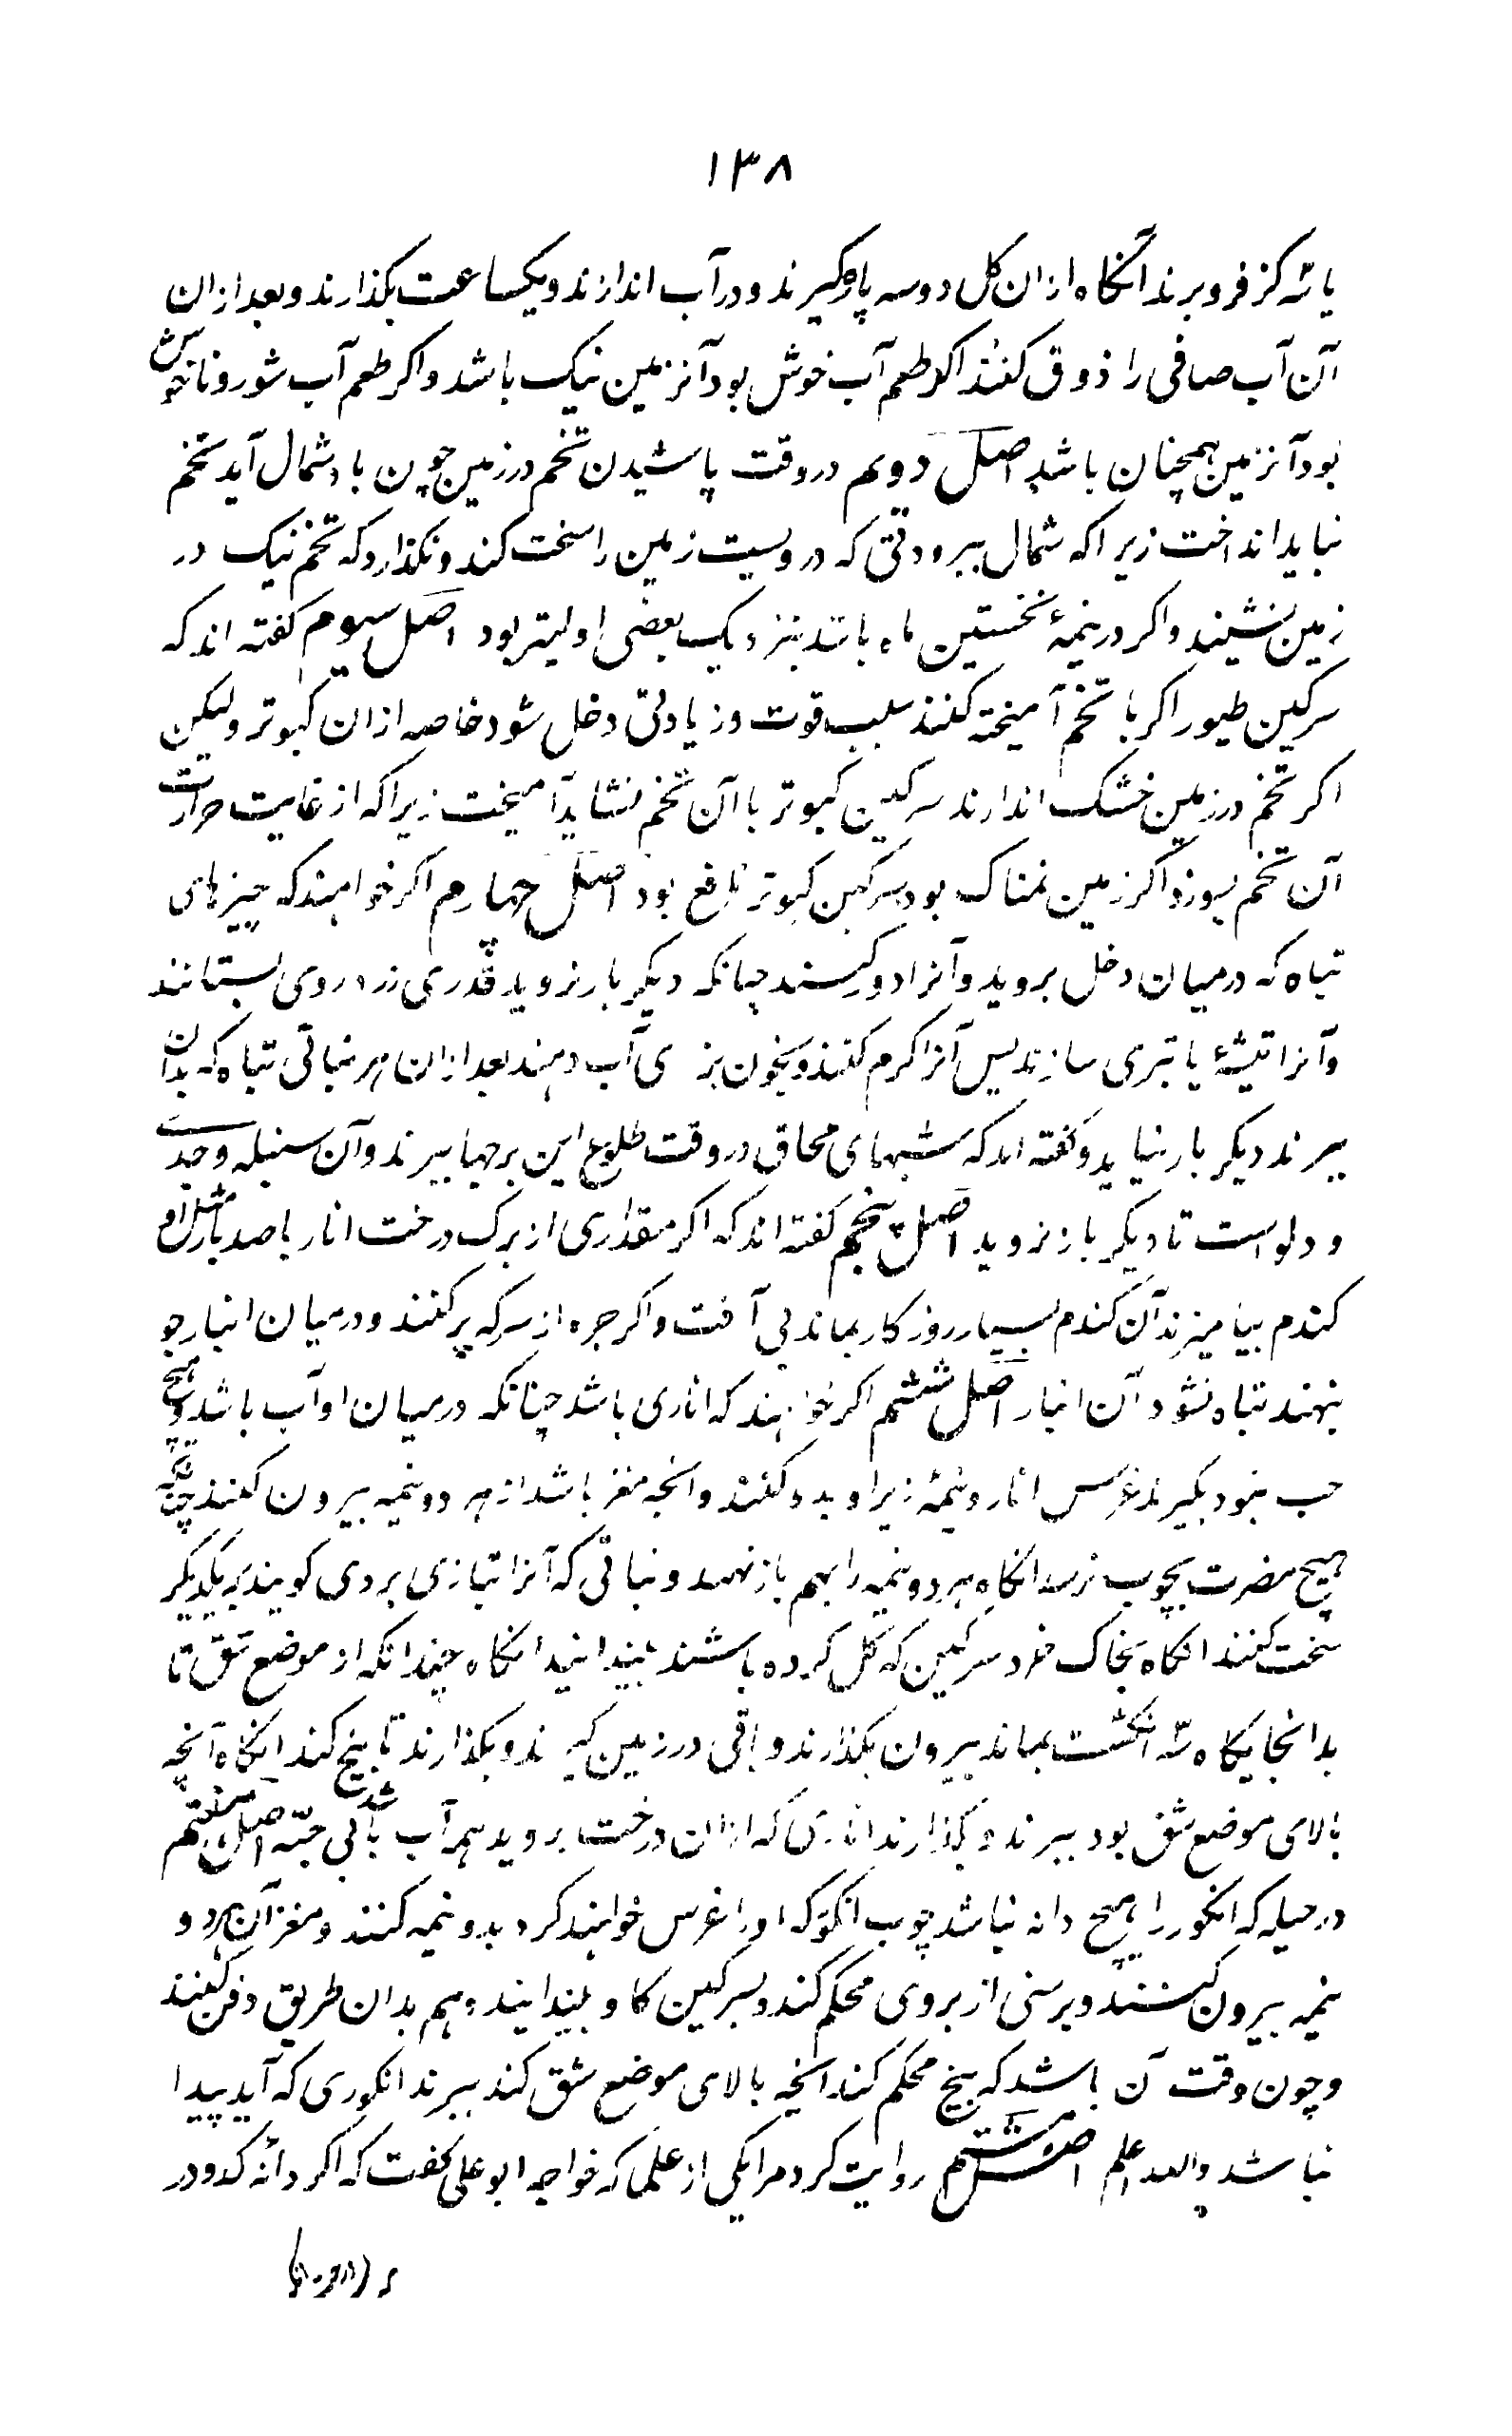 ۱۳۸
یا سه گز فرو برند آنگاه ازان گل دو سه پاره گیرند و در آب اندازند و یکساعت بگذارند و بعد ازان
آن آب صافی را ذوق کنند اگر طعم آب خوش بود آنزمین نیک باشد و اگر طعم آب شور و ناخوش
بود آنزمین همچنان باشد اصل دویم در وقت پاشیدن تخم در زمین چون باد شمال آید تخم
نباید انداخت زیرا که شمال ببرودتی که در ویست زمین را سخت کند و نگذارد که تخم نیک در
زمین نشیند و اگر در نیمهٔ نخستین ماه باشد بنزدیک بعضی اولیتر بود اصل سیوم گفته اند که
سرکین طیور اگر با تخم آمیخته کنند سبب قوت و زیادتی دخل شود خاصه ازان کبوتر و لیکن
اگر تخم در زمین خشک اندازند سرکین کبوتر با آن تخم نشاید آمیخت زیرا که از غایت حرارت
آن تخم بسوزد و اگر زمین نمناک بود سرکین کبوتر نافع بود اصل چهارم اگر خواهند که چیزهای
تباه که در میان دخل بروید و آنرا دور کنند چنانکه دیگر بار نروید قدری زر روی بستانند
و آنرا تیشهٔ یا تبری سازند پس آنرا گرم کنند و بخون بزی آب دهند بعد ازان هر نباتی تباه که بدان
ببرند دیگر بار نیاید و گفته اند که شبهای محاق در وقت طلوع این برجها ببرند و آن سنبله و جدی
و دلو است تا دیگر باز نروید اصل پنجم گفته اند که اگر مقداری از برک درخت انار با صد بار مثل او
گندم بیامیزند آن گندم بسیار روزگار بماند بی آفت و اگر جره از سرکه پر کنند و در میان انبار جو
بنهند تباه نشود آن انبار اصل ششم اگر خواهند که اناری باشد چنانکه در میان او آب باشد و هیچ
حب نبود بگیرند غرس انار و نیمهٔ زیر او بدو کنند و آنچه مغز باشد از هر دو نیمه بیرون کنند چنانکه
هیچ مضرت بچوب نرسد انگاه هر دو نیمه را بهم باز نهند و نباتی که آنرا بتازی بردی گویند بر یکدیگر
سخت کنند انگاه بخاک خرد سرکین که گل کرده باشند بیندایند انگاه چندانکه از موضع شق تا
بدانجایگاه سه انگشت بماند بیرون بگذارند و باقی در زمین گیرند و بگذارند تا بیخ کند انگاه آنچه
بالای موضع شق بود ببرند و بگذارند اناری که ازان درخت بروید همه آب باشد بی حبّه اصل هفتم
در حیله که انگور را هیچ دانه نباشد چوب انگور که اورا غرس خواهند کرد بدو نیمه کنند و مغز آن هر دو
نیمه بیرون کنند و برسنی از بردی محکم کنند و بسرکین گاو بیندایند و هم بدان طریق دفن کنند
و چون وقت آن باشد که بیخ محکم کند آنچه بالای موضع شق کند ببرند انگوری که آید پیدا
نباشد والله اعلم اصل هشتم روایت کرد مرا یکی از علما که خواجه ابو علی گفت که اگر دانه کدو در